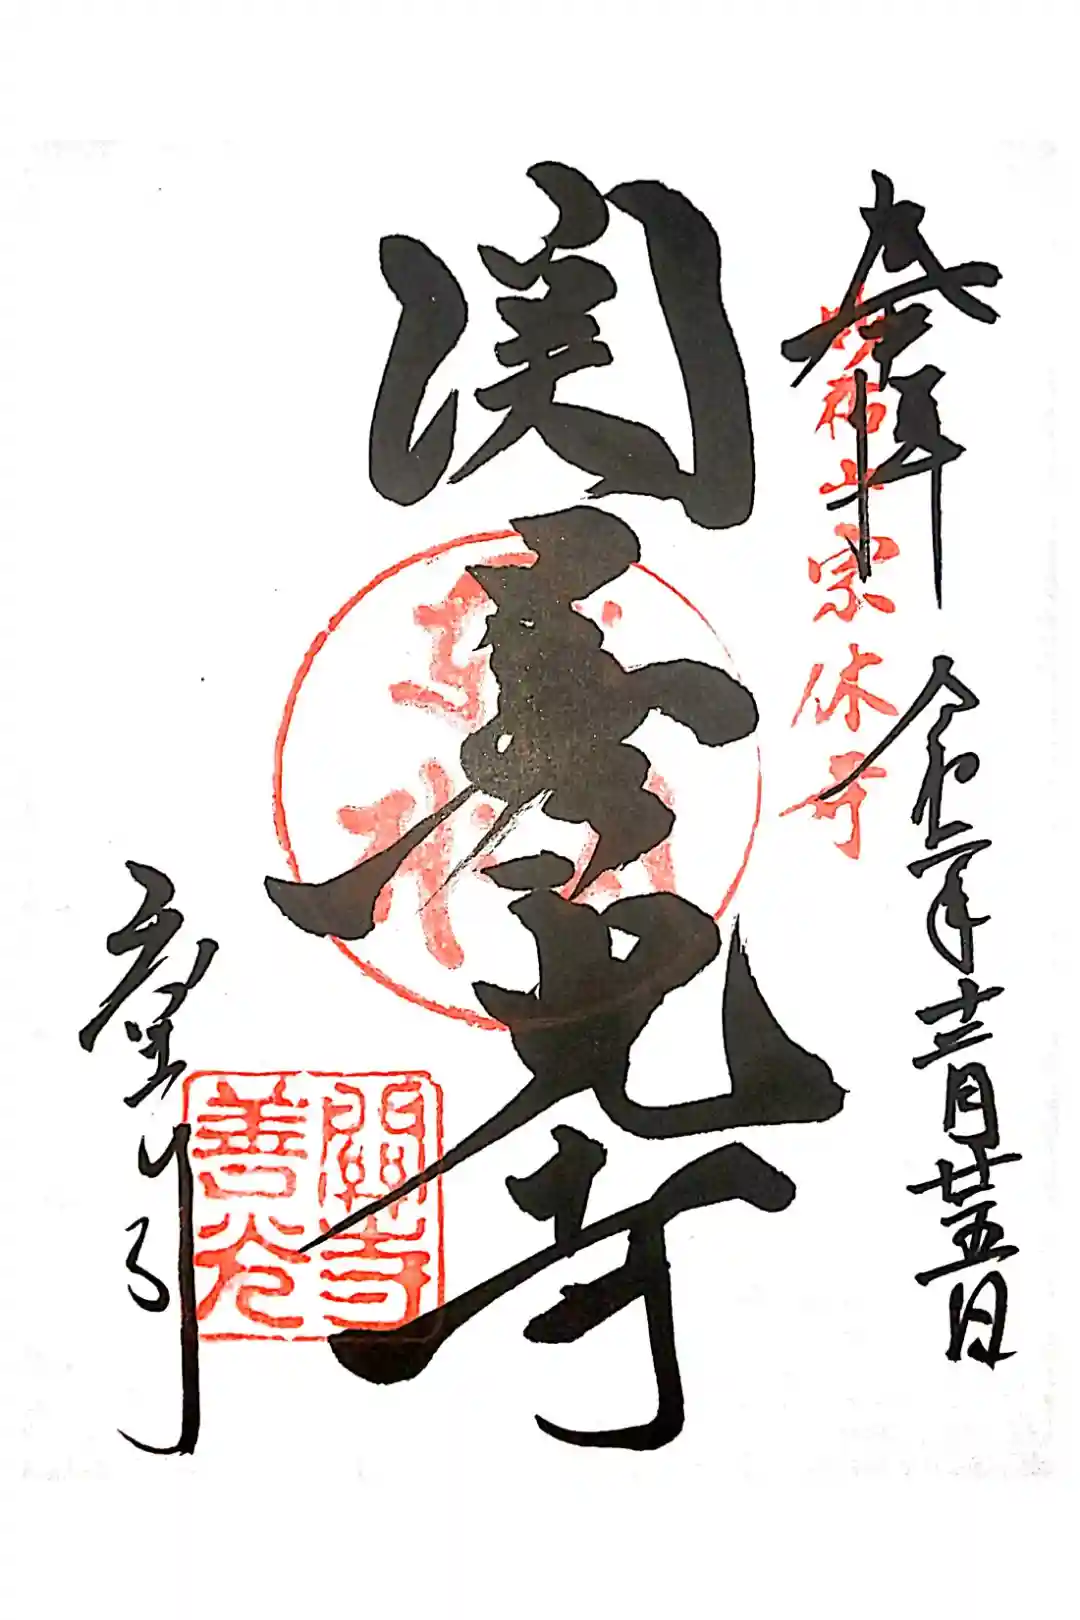 奉拝
妙祐山宗休寺
令和二年十二月廿五日
関善光寺
關善光寺